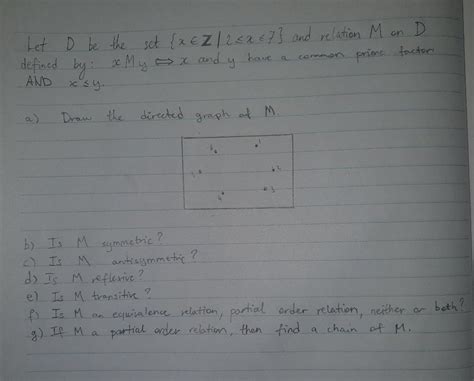 Let D be the set {x ∈ Z | 2 ≤ x ≤ 7} and relation M on D
defined by: x M y ⟺ x and y have a common prime factor
AND x ≤ y.
a) Draw the directed graph of M.
b) Is M symmetric?
c) Is M antisymmetric?
d) Is M reflexive?
e) Is M transitive?
f) Is M an equivalence relation, partial order relation, neither or both?
g) If M a partial order relation, then find a chain of M.